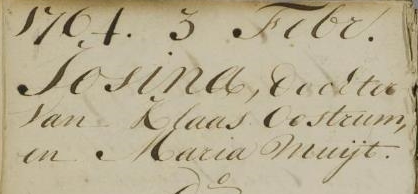 1764. 3 Febr.
Josina, dochter
van Klaas Oostrum,
en Maria Muijt.
do